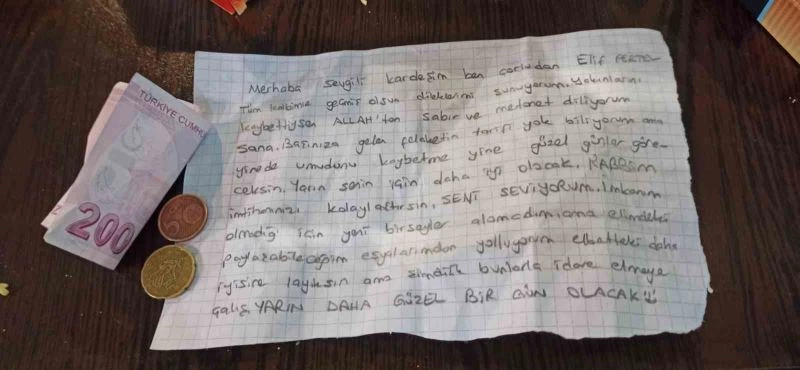 TÜRKİYE CUMHU
200
Merhaba sevgili kardeşim ben çorludan Elif
Tüm kalbimle geçmiş olsun dileklerimi sunuyorum. Yakınlarını
kaybettiysen ALLAH'tan sabır ve metanet diliyorum
sana. Başınıza gelen felaketin tarifi yok biliyorum ama
yinede umudunu kaybetme yine güzel günler göre-
ceksin. Yarın senin için daha iyi olacak. RABBİM
imtihanınızı kolaylaştırsın. SENİ SEVİYORUM. İmkanım
olmadığı için yeni birşeyler alamadım ama elimdeki
paylaşabileceğim eşyalarımdan yolluyorum elbetteki daha
iyisine layıksın ama şimdilik bunlarla idare etmeye
çalış YARIN DAHA GÜZEL BİR GÜN OLACAK